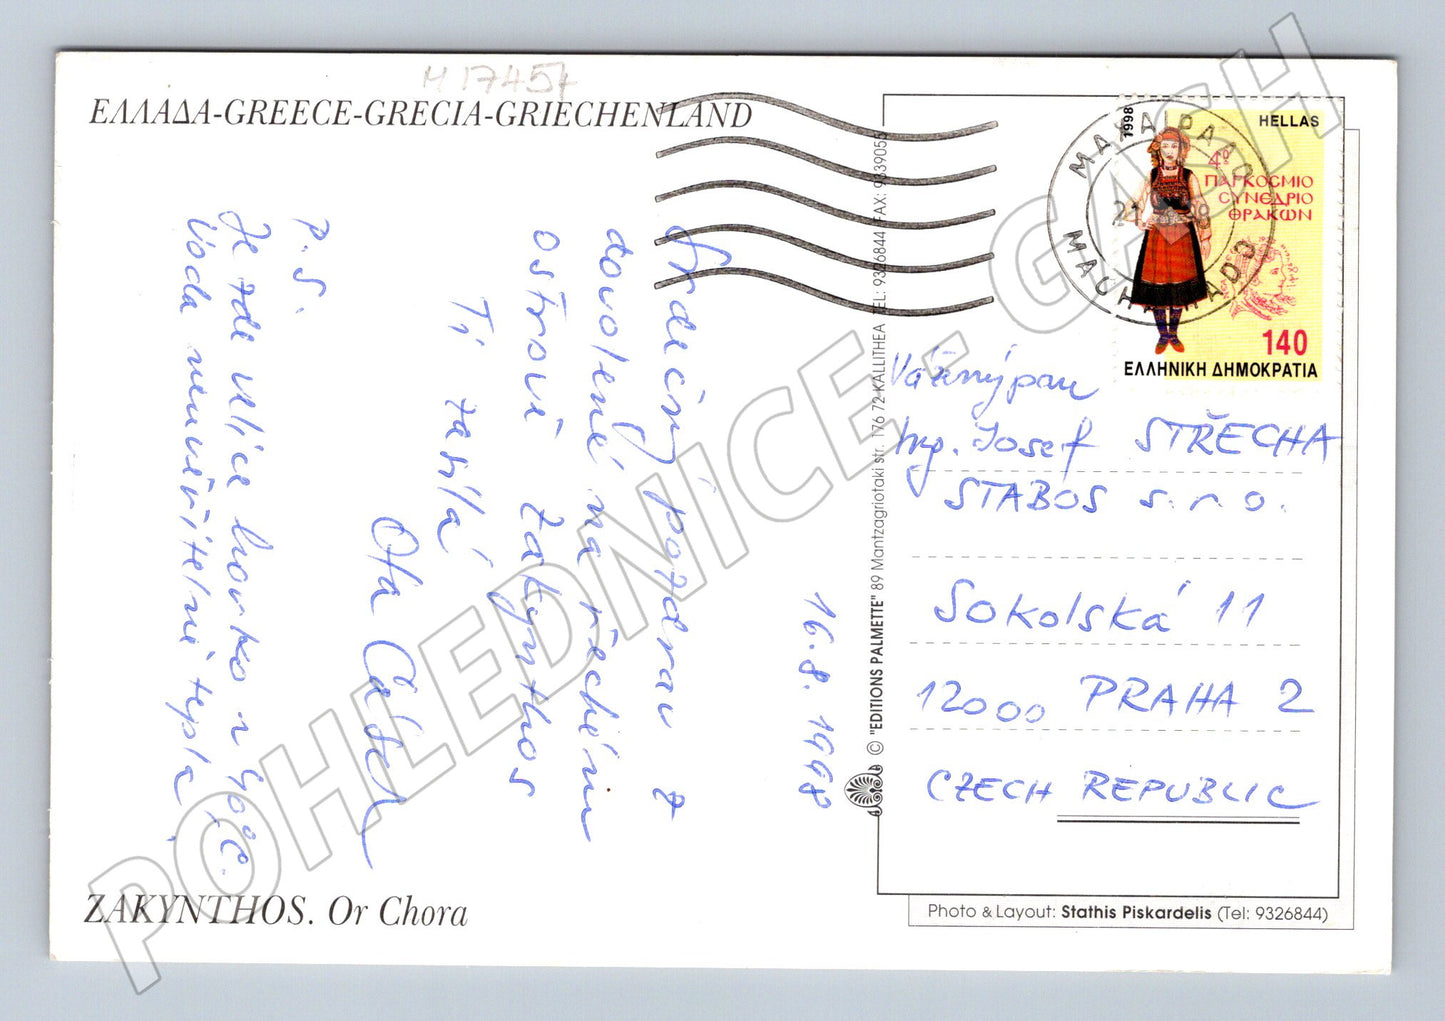 H 17457
ΕΛΛΑΔΑ-GREECE-GRECIA-GRIECHENLAND
16.8.1998
Srdečný pozdrav z
dovolené na řeckém
ostrově Zakynthos
Ti zasílá
Ota
P.S.
Je zde velice horko 40°C.
Voda neuvěřitelně teplá.
ZAKYNTHOS. Or Chora
© "EDITIONS PALMETTE" 89 Mantzagriotaki str. 176 72 KALLITHEA TEL: 9326844 FAX: 9339055
1998
HELLAS
4º
ΠΑΓΚΟСΜΙΟ
СΥΝΕΔΡΙΟ
ΘΡΑΚΩΝ
140
ΕΛΛΗΝΙΚΗ ΔΗΜΟΚΡΑΤΙΑ
ΜΑΧΑΙΡΑΔΟ
21
98
MACHAIRADO
Vážený pan
Ing. Josef STŘECHA
STABOS s.r.o.
Sokolská 11
12000 PRAHA 2
CZECH REPUBLIC
Photo & Layout: Stathis Piskardelis (Tel: 9326844)
POHLEDNICE - CASH